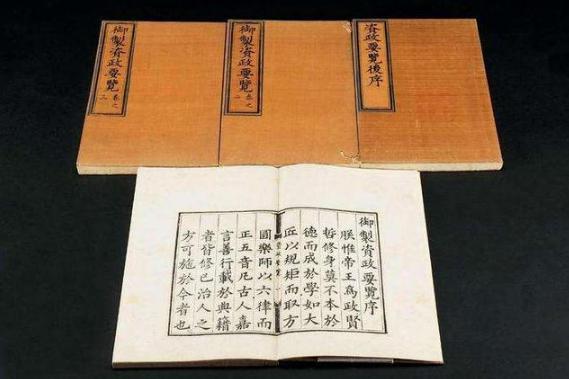 資政要覽後序
御製資政要覽卷之二
御製資政要覽卷之三
御製資政要覽序
朕惟帝王爲政賢
哲修身莫不本於
德而成於學如大
匠以規矩而取方
圓樂師以六律而
正五音凡古人嘉
言善行載於典籍
者皆修己治人之
方可施於今者也